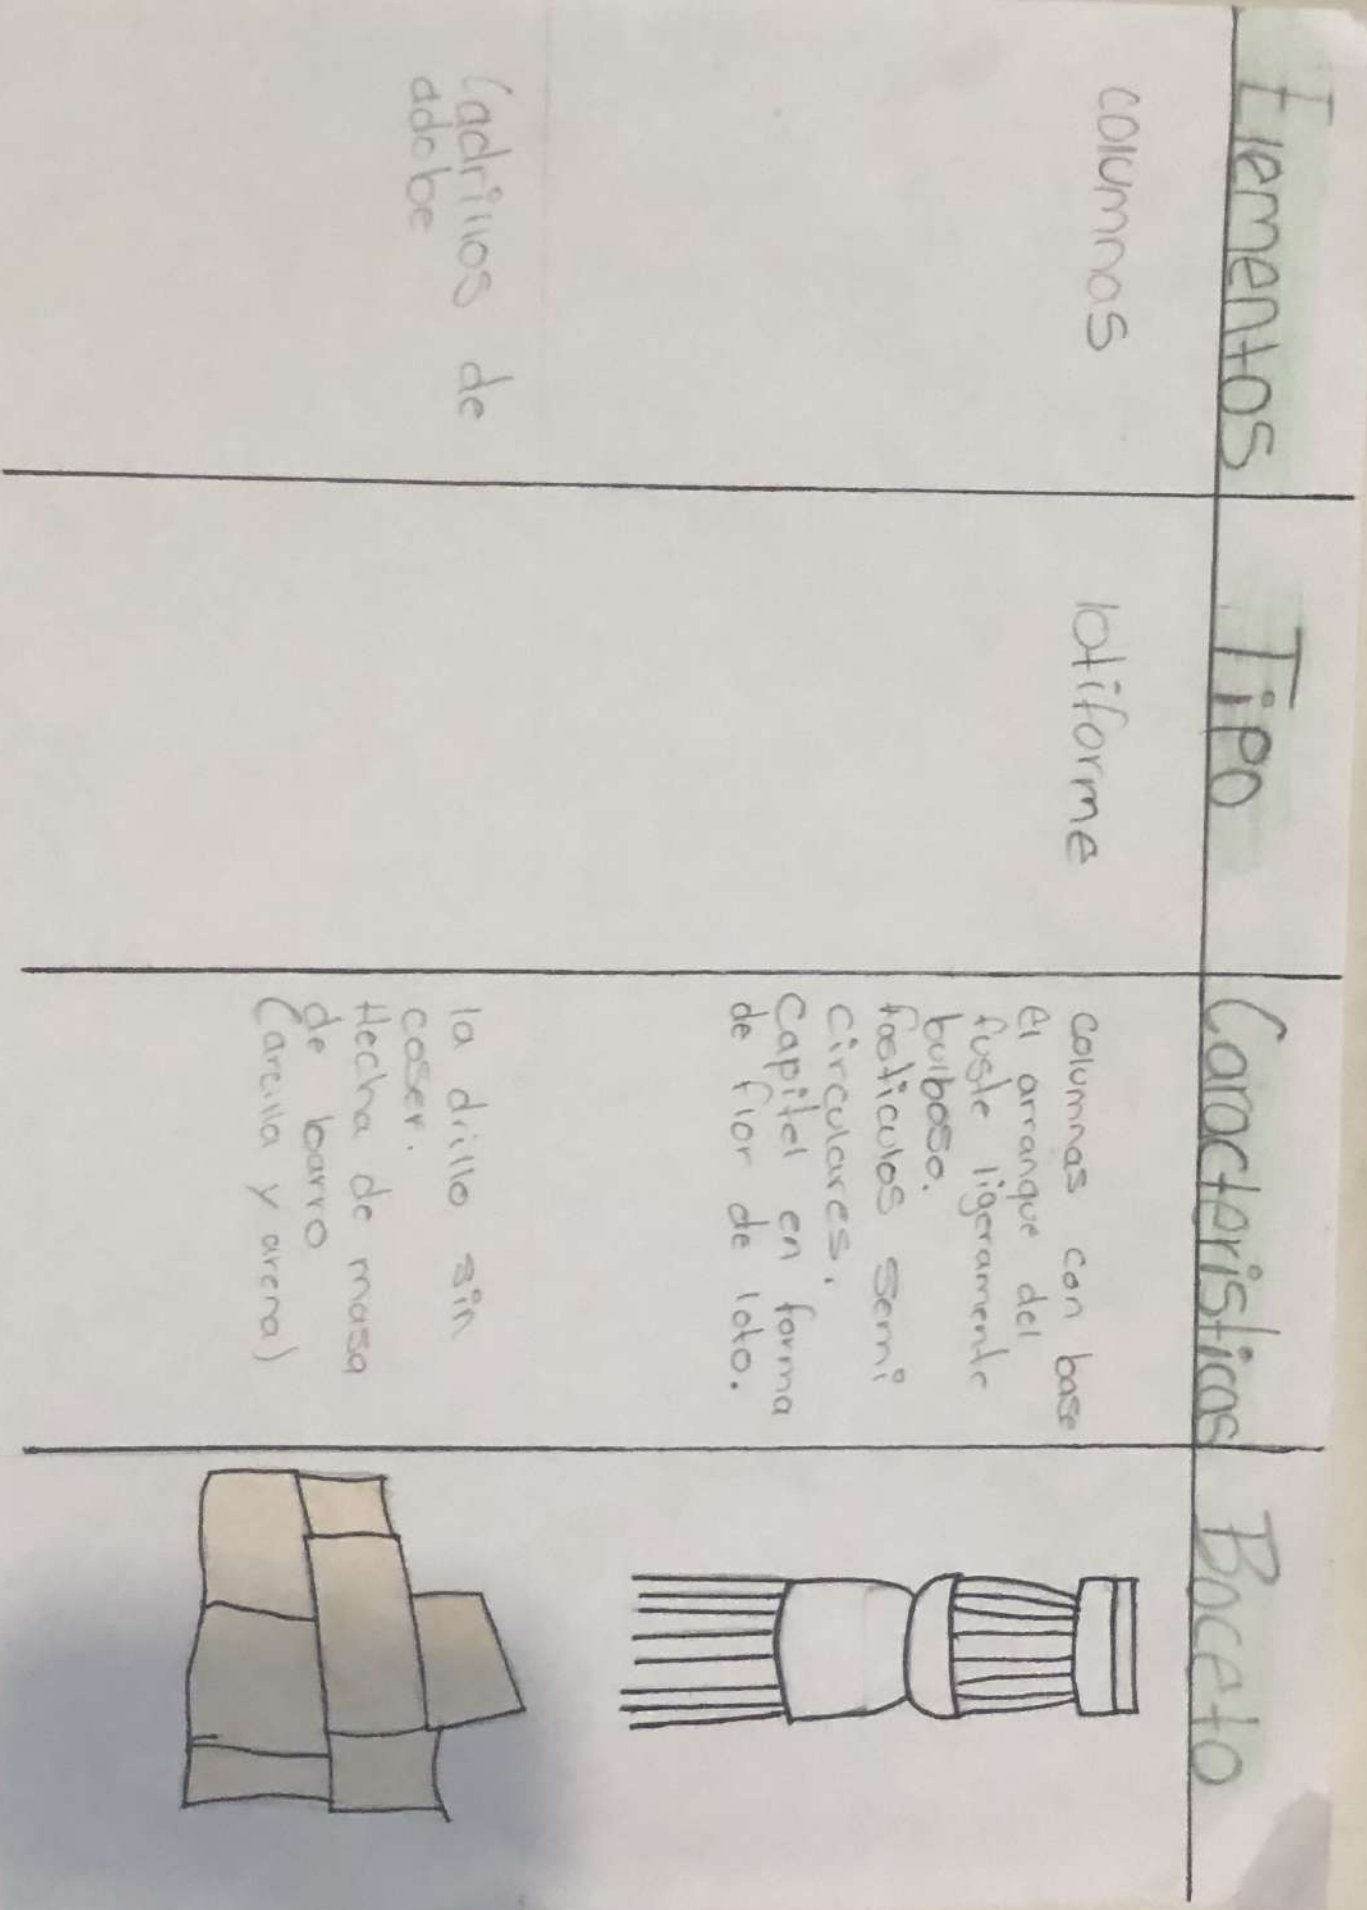 Elementos
Tipo
Caracteristicas
Boceto
columnas
lotiforme
columnas con base
el arranque del
fuste ligeramente
bulboso.
fasticulos semi
circulares.
Capitel en forma
de flor de loto.
Ladrillos de
adobe
la drillo sin
coser.
Hecha de masa
de barro
(arcilla y arena)